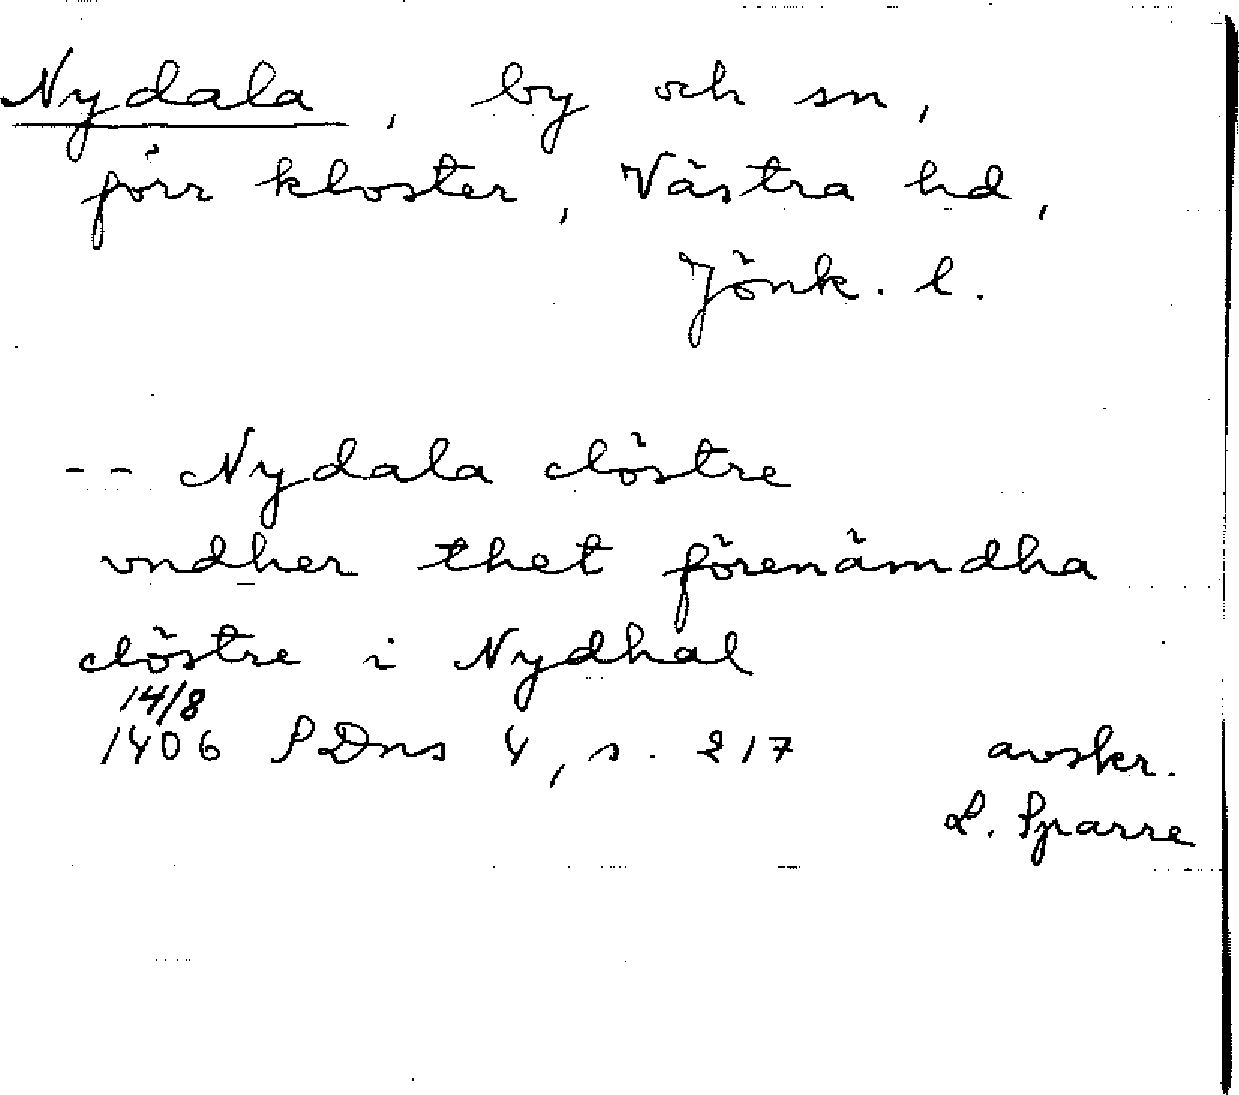 Nydala, by och sn,
förr kloster, Västra hd,
Jönk. l.
-- Nydala clöstre
vndher thet förenämdha
clöstre i Nydhal
14/8
1406 SDns 4, s. 217 avskr.
L. Sparre